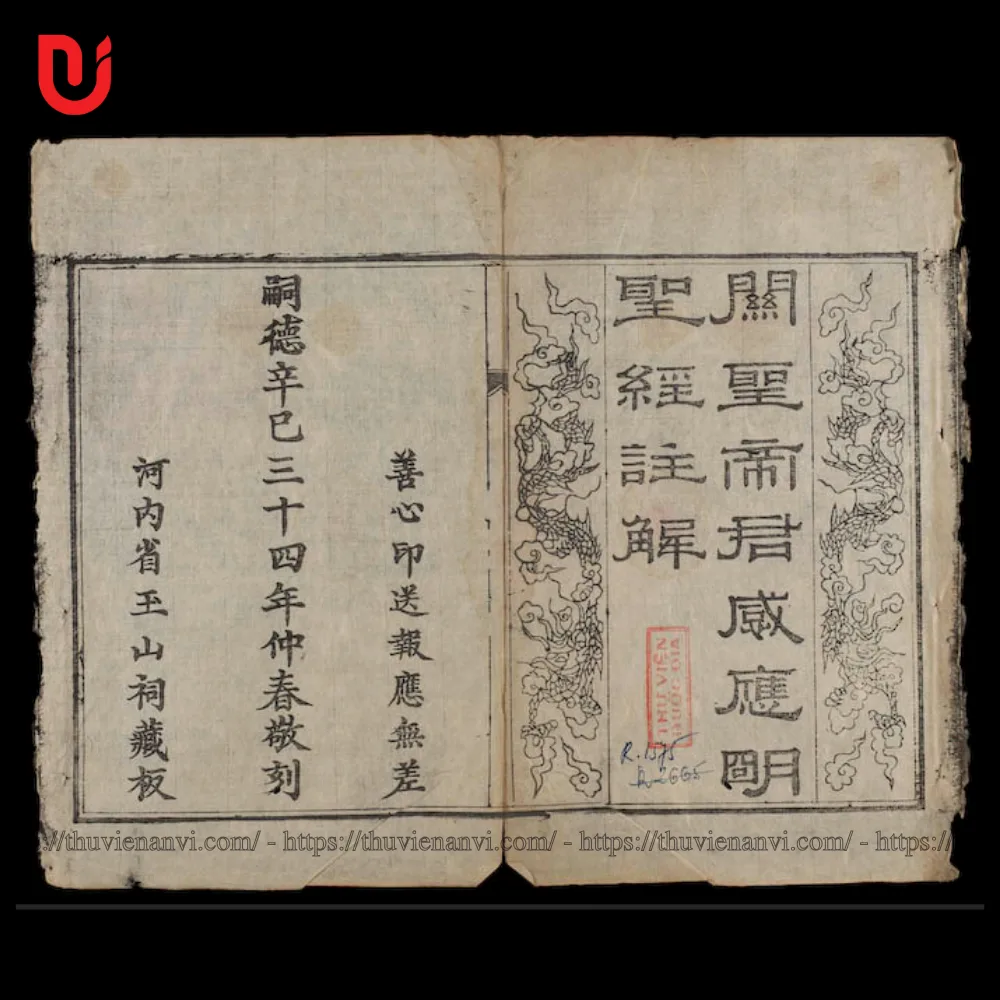 關聖帝君感應明
聖經註解
善心印送報應無差
嗣德辛巳三十四年仲春敬刻
河内省玉山祠藏板
THU VIEN
QUOC GIA
R.1575
://thuvienanvi.com/ - https://thuvienanvi.com/ - https://thuvienanvi.com/ - https:/